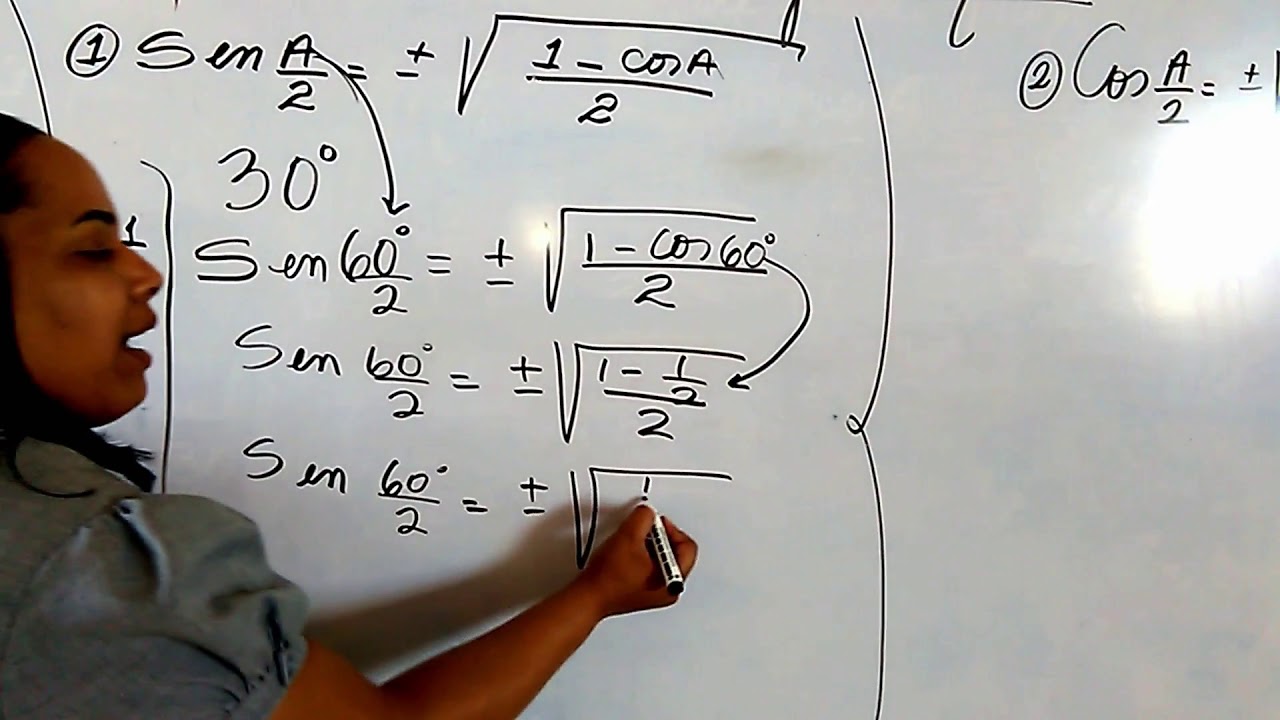 ① Sen A/2 = ± √((1 - cosA)/2)
30°
Sen 60°/2 = ± √((1 - Cos60°)/2)
Sen 60°/2 = ± √((1 - 1/2)/2)
Sen 60°/2 = ± √(1
1
② Cos A/2 = ±